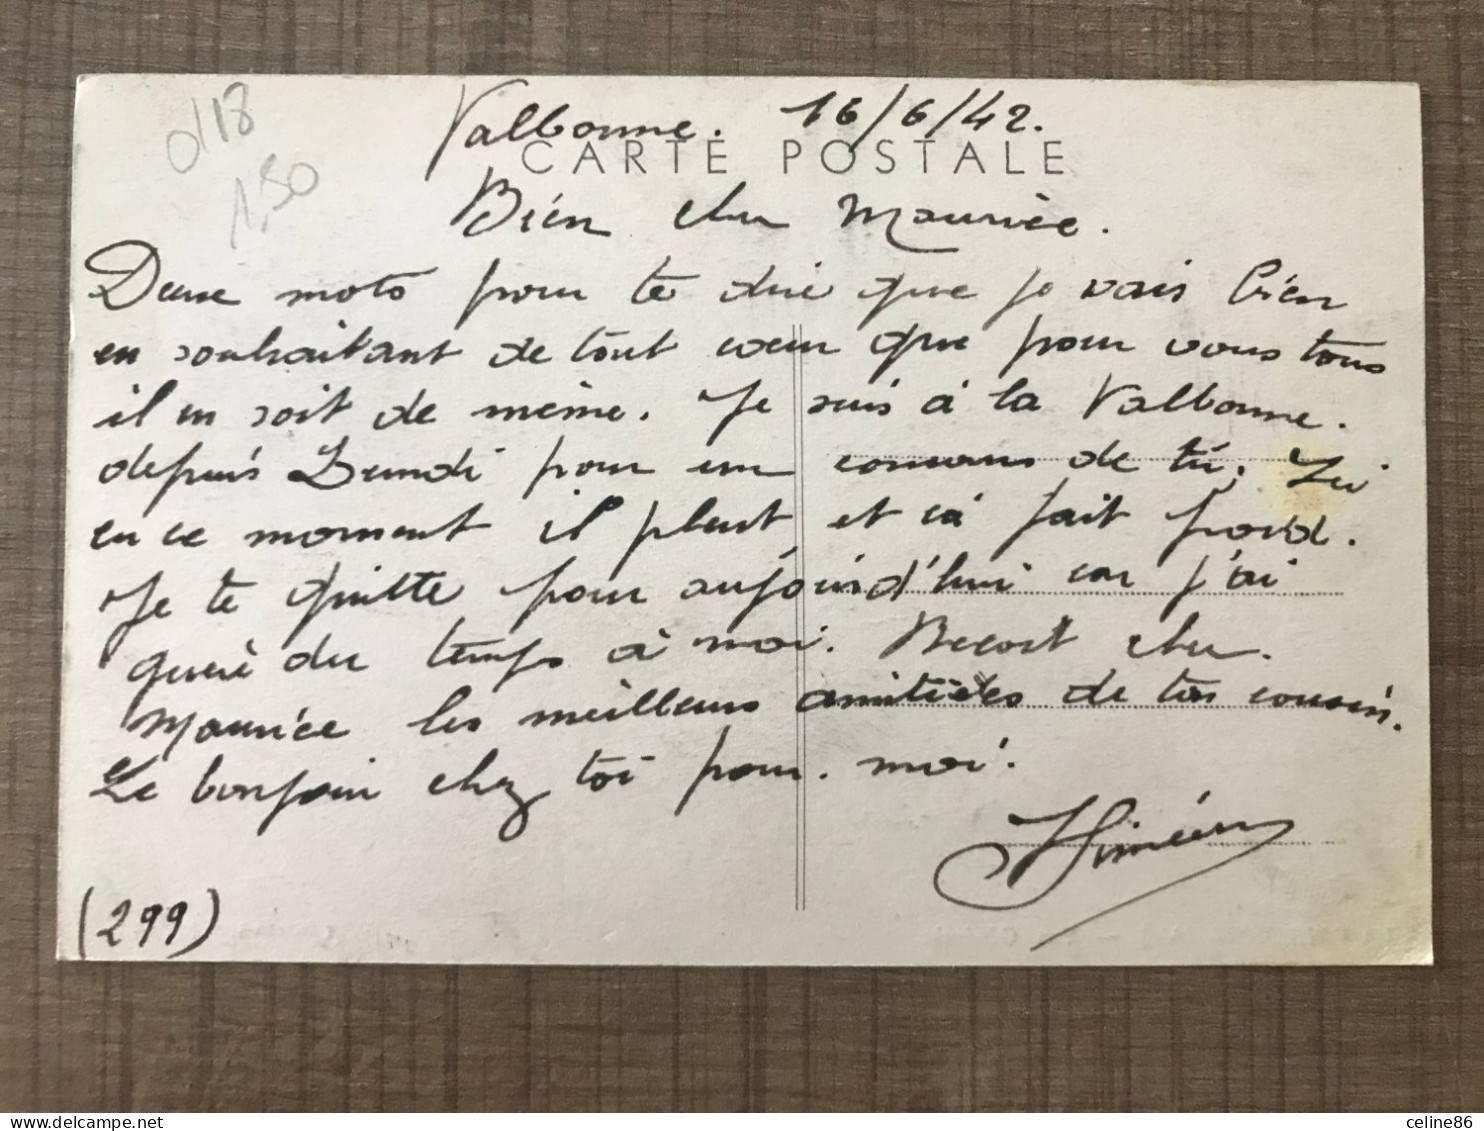 d18
1,50
Valbonne. 16/6/42.
CARTE POSTALE
Bien cher Maurice.
Deux mots pour te dire que je vais bien
en souhaitant de tout cœur que pour vous tous
il en soit de même. Je suis à la Valbonne.
depuis Lundi pour un de tir. Ici
en ce moment il pleut et cà fait froid.
Je te quitte pour aujourd'hui car j'ai
guère du temps à moi. Reçoit cher
Maurice les meilleurs amitiées de ton cousin.
Le bonjour chez toi pour moi.
(299)
celine86